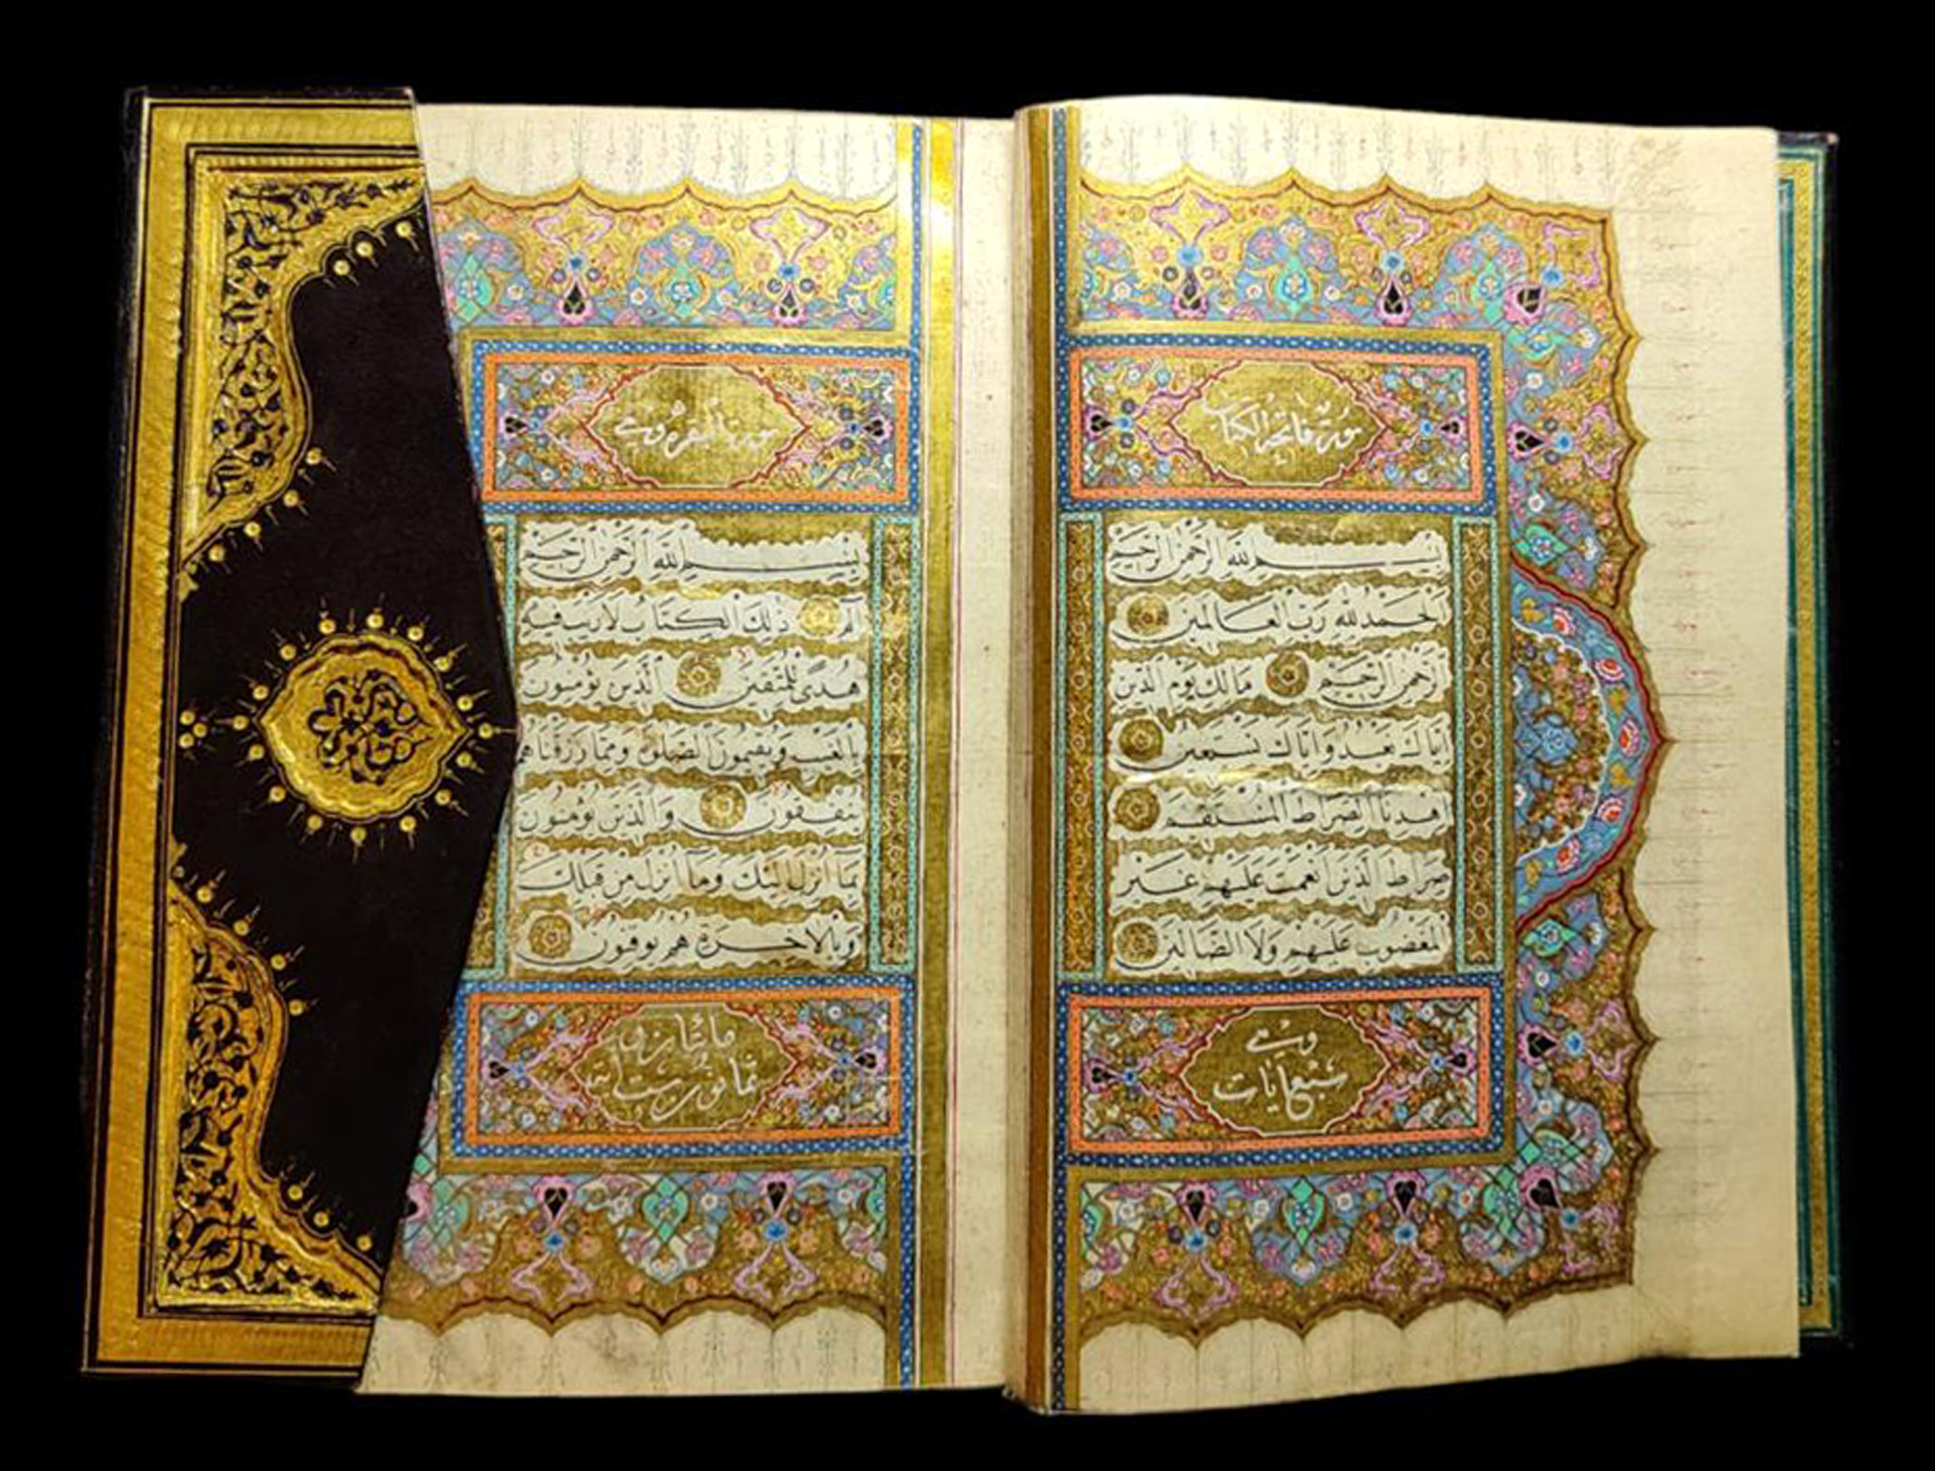 سُورَةُ فَاتِحَةِ الْكِتَابِ
بِسْمِ اللّٰهِ الرَّحْمٰنِ الرَّحِيمِ
اَلْحَمْدُ لِلّٰهِ رَبِّ الْعَالَمِينَ
اَلرَّحْمٰنِ الرَّحِيمِ مَالِكِ يَوْمِ الدِّينِ
اِيَّاكَ نَعْبُدُ وَاِيَّاكَ نَسْتَعِينُ
اِهْدِنَا الصِّرَاطَ الْمُسْتَقِيمَ
صِرَاطَ الَّذِينَ اَنْعَمْتَ عَلَيْهِمْ غَيْرِ
الْمَغْضُوبِ عَلَيْهِمْ وَلَا الضَّالِّينَ
وَهِيَ
سَبْعُ اٰيَاتٍ
سُورَةُ الْبَقَرَةِ وَهِيَ
بِسْمِ اللّٰهِ الرَّحْمٰنِ الرَّحِيمِ
الٓمٓ ذٰلِكَ الْكِتَابُ لَا رَيْبَ فِيهِ
هُدًى لِلْمُتَّقِينَ اَلَّذِينَ يُؤْمِنُونَ
بِالْغَيْبِ وَيُقِيمُونَ الصَّلٰوةَ وَمِمَّا رَزَقْنَاهُمْ
يُنْفِقُونَ وَالَّذِينَ يُؤْمِنُونَ
بِمَا اُنْزِلَ اِلَيْكَ وَمَا اُنْزِلَ مِنْ قَبْلِكَ
وَبِالْاٰخِرَةِ هُمْ يُوقِنُونَ
مائتان و
ثمانون وست آية